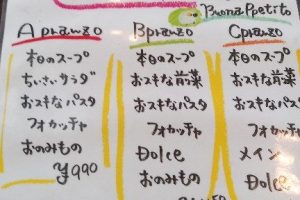 Buona Ppetito
A pranzo
本日のスープ
ちいさいサラダ
お好きなパスタ
フォカッチャ
おのみもの
¥990
B pranzo
本日のスープ
お好きな前菜
お好きなパスタ
フォカッチャ
Dolce
おのみもの
C pranzo
本日のスープ
お好きな前菜
お好きなパスタ
フォカッチャ
メイン
Dolce